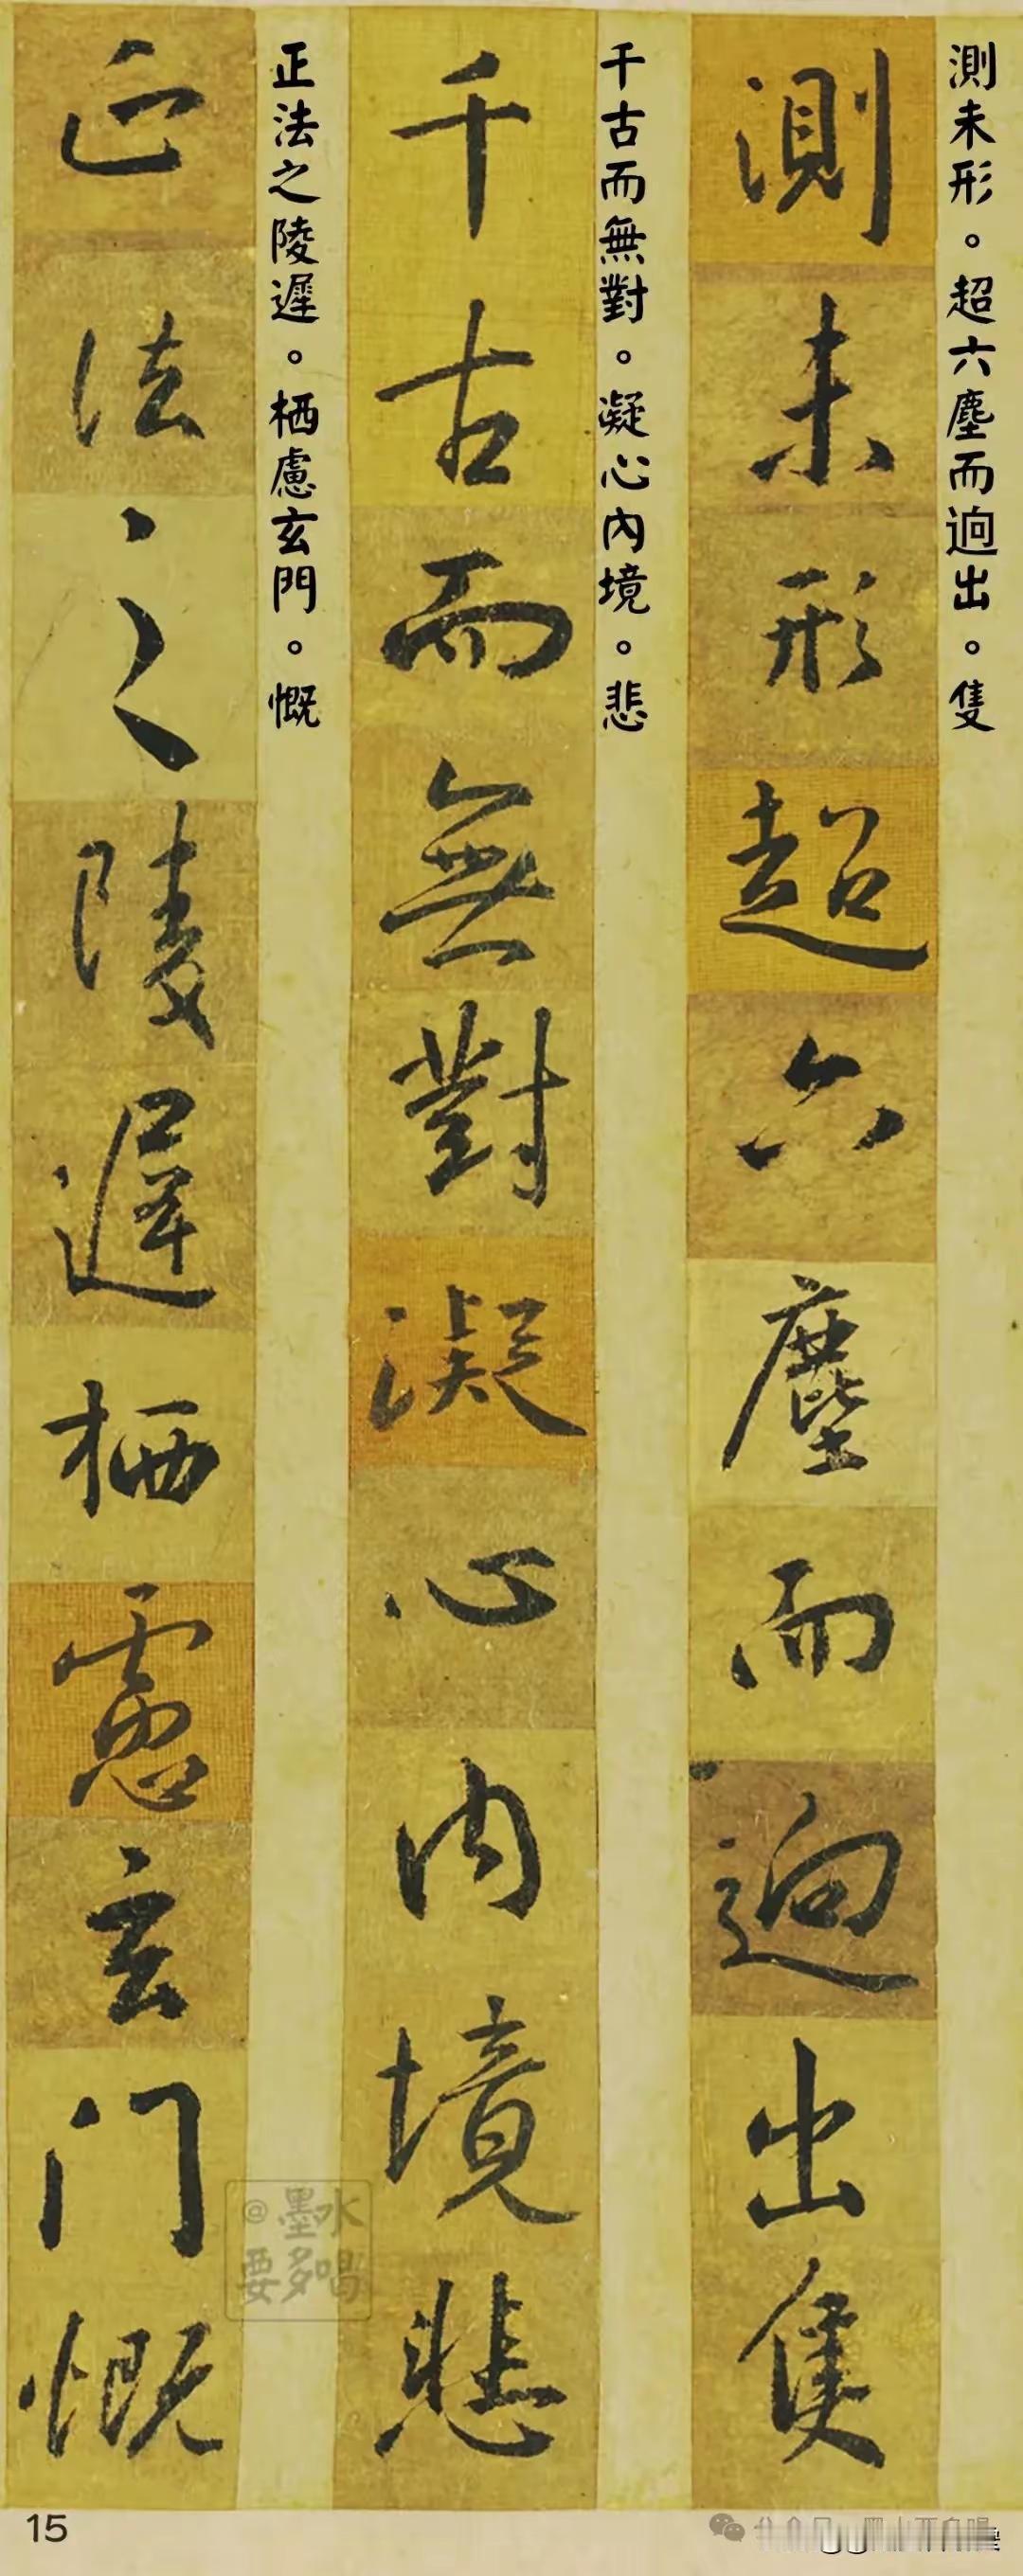 測未形。超六塵而逈出。隻
測未形超六塵而逈出隻
千古而無對。凝心內境。悲
千古而無對凝心內境悲
正法之陵遲。栖慮玄門。慨
正法之陵遲栖慮玄門慨
@墨水
要多喝
15